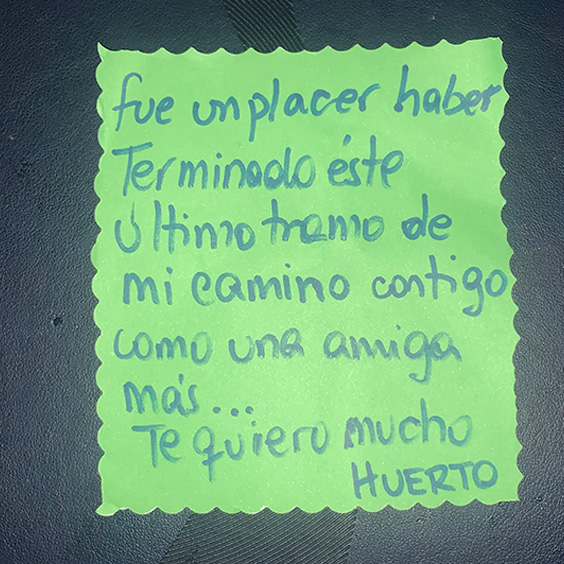 fue un placer haber
Terminado éste
último tramo de
mi camino contigo
como una amiga
más...
Te quiero mucho
HUERTO